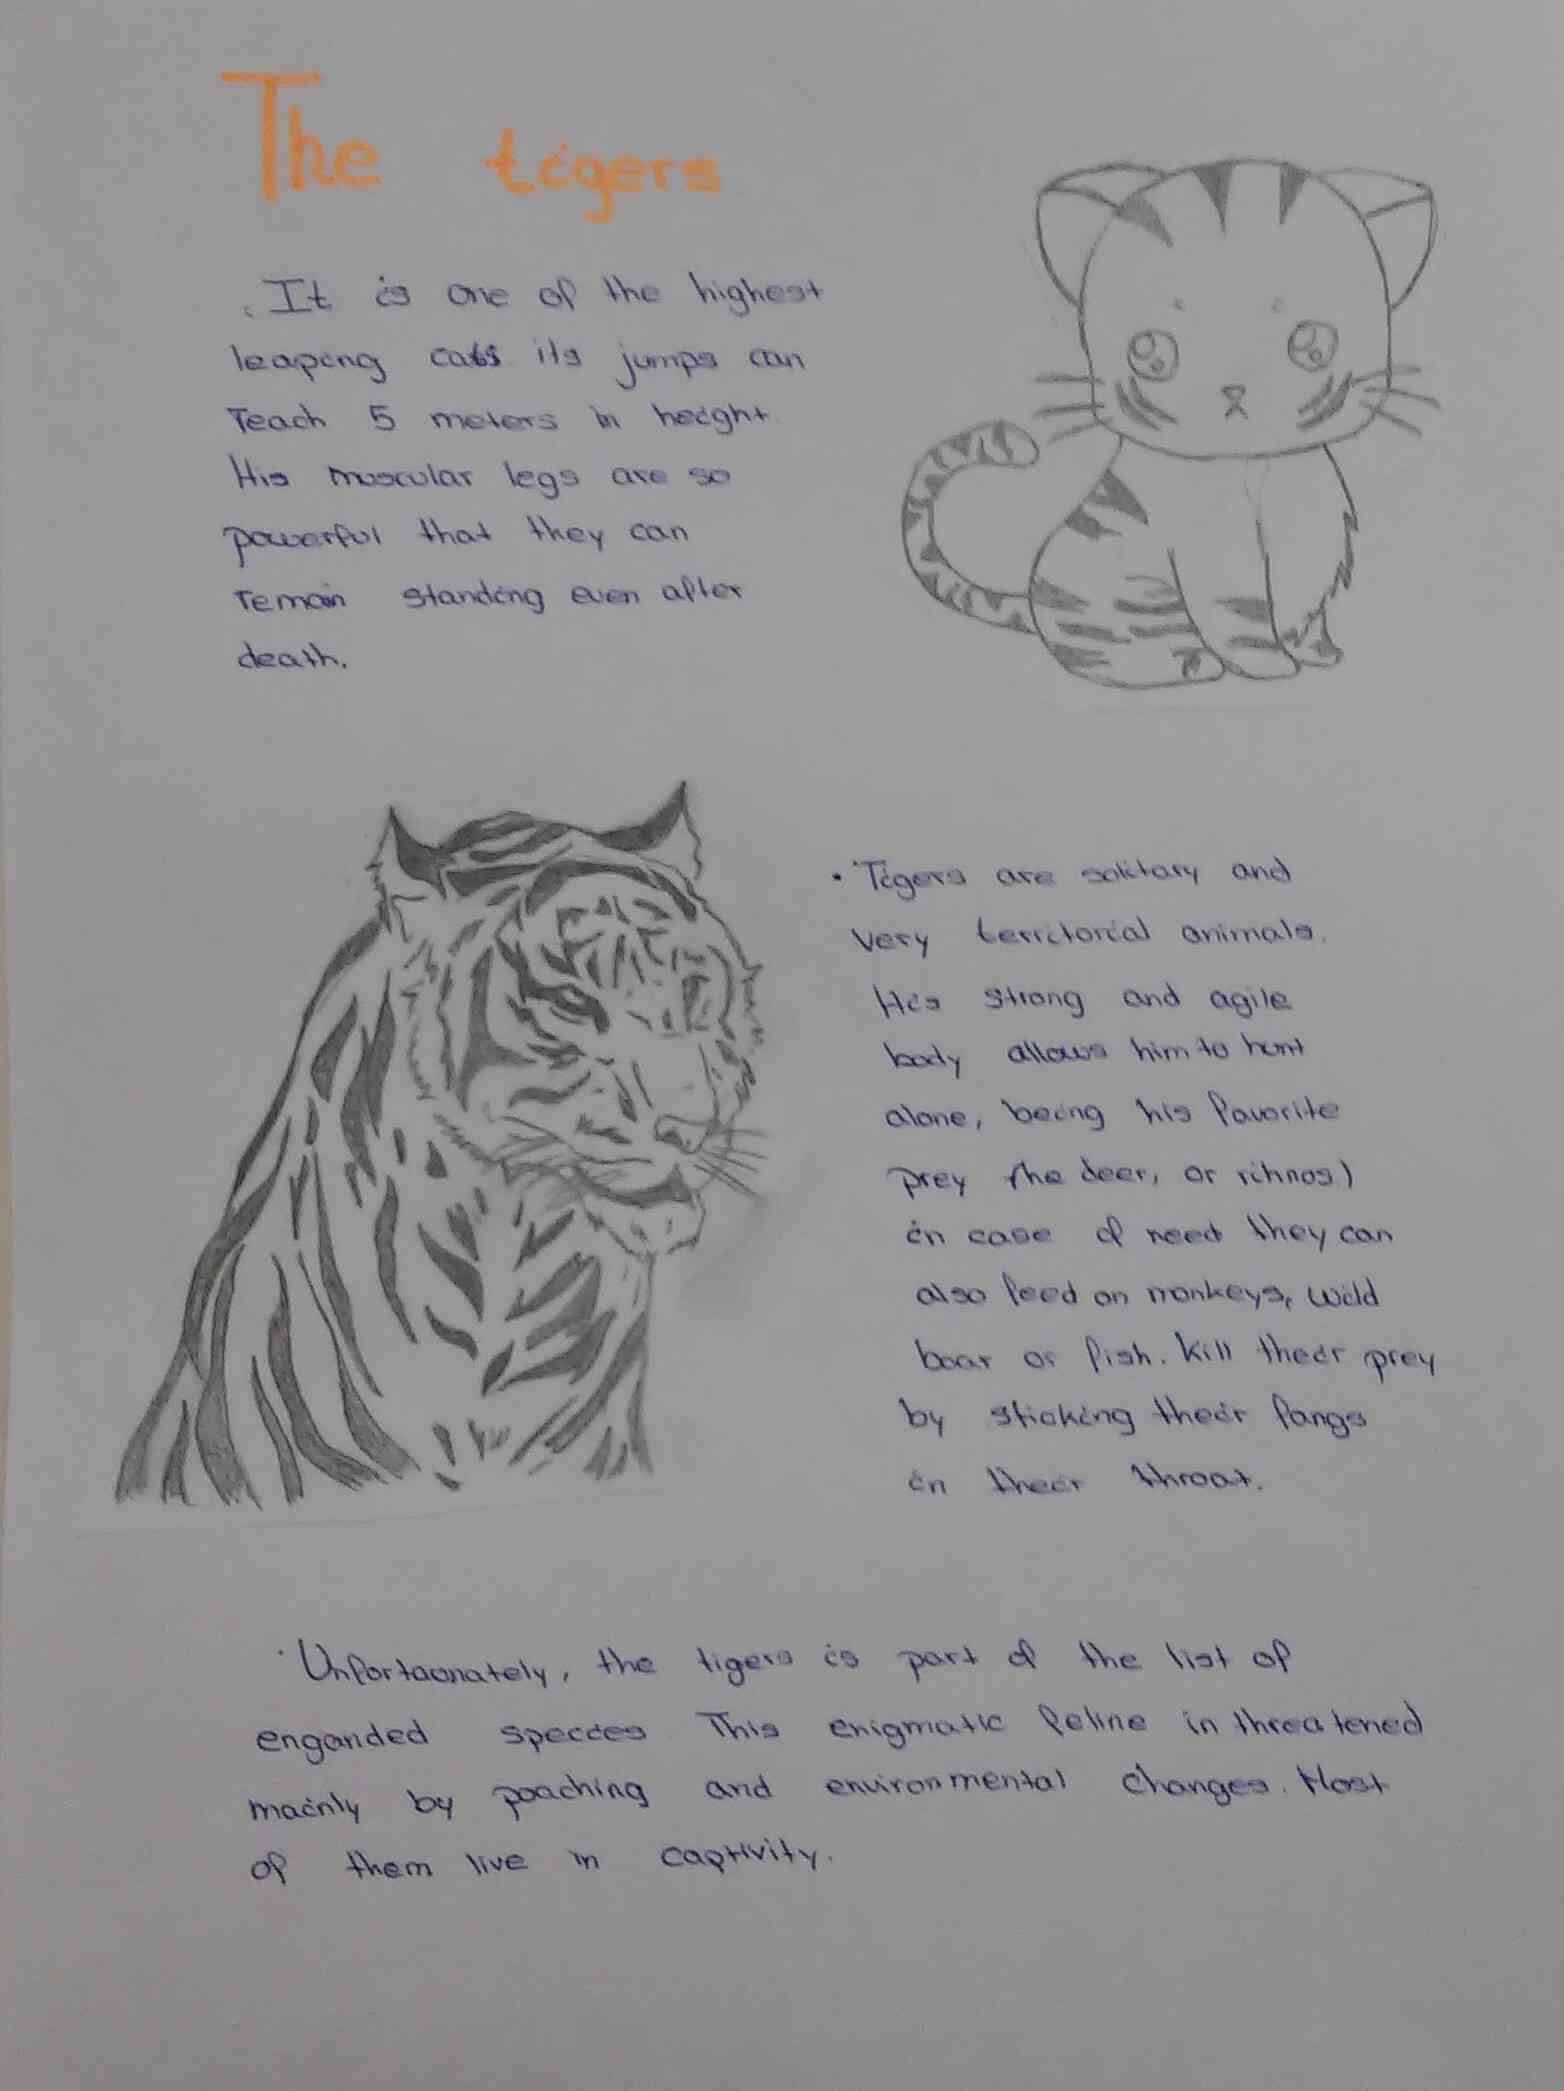 The tigers
. It is one of the highest
leaping cats its jumps can
reach 5 meters in height
His muscular legs are so
powerful that they can
remain standing even after
death.
• Tigers are solitary and
very territorial animals.
His strong and agile
body allows him to hunt
alone, being his favorite
prey the deer, or rihnos)
in case of need they can
also feed on monkeys, wild
boar or fish. Kill their prey
by sticking their fangs
in their throat.
· Unfortaunately, the tigers is part of the list of
enganded species This enigmatic feline in threatened
mainly by poaching and environmental changes. Most
of them live in captivity.